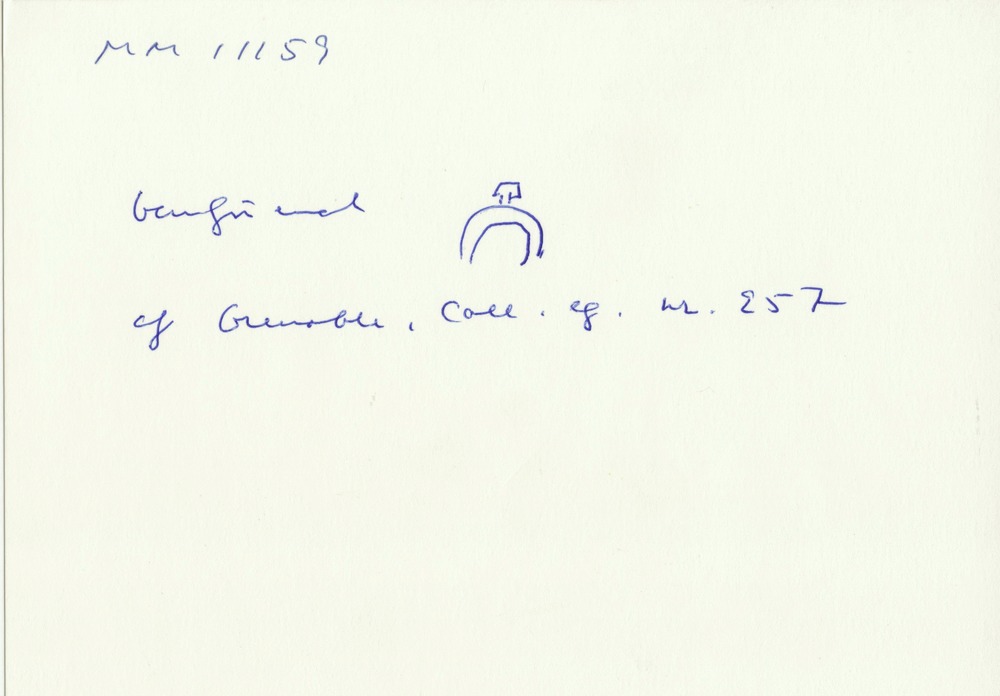 MM 11159
cf Grenoble, Coll. eg. nr. 257